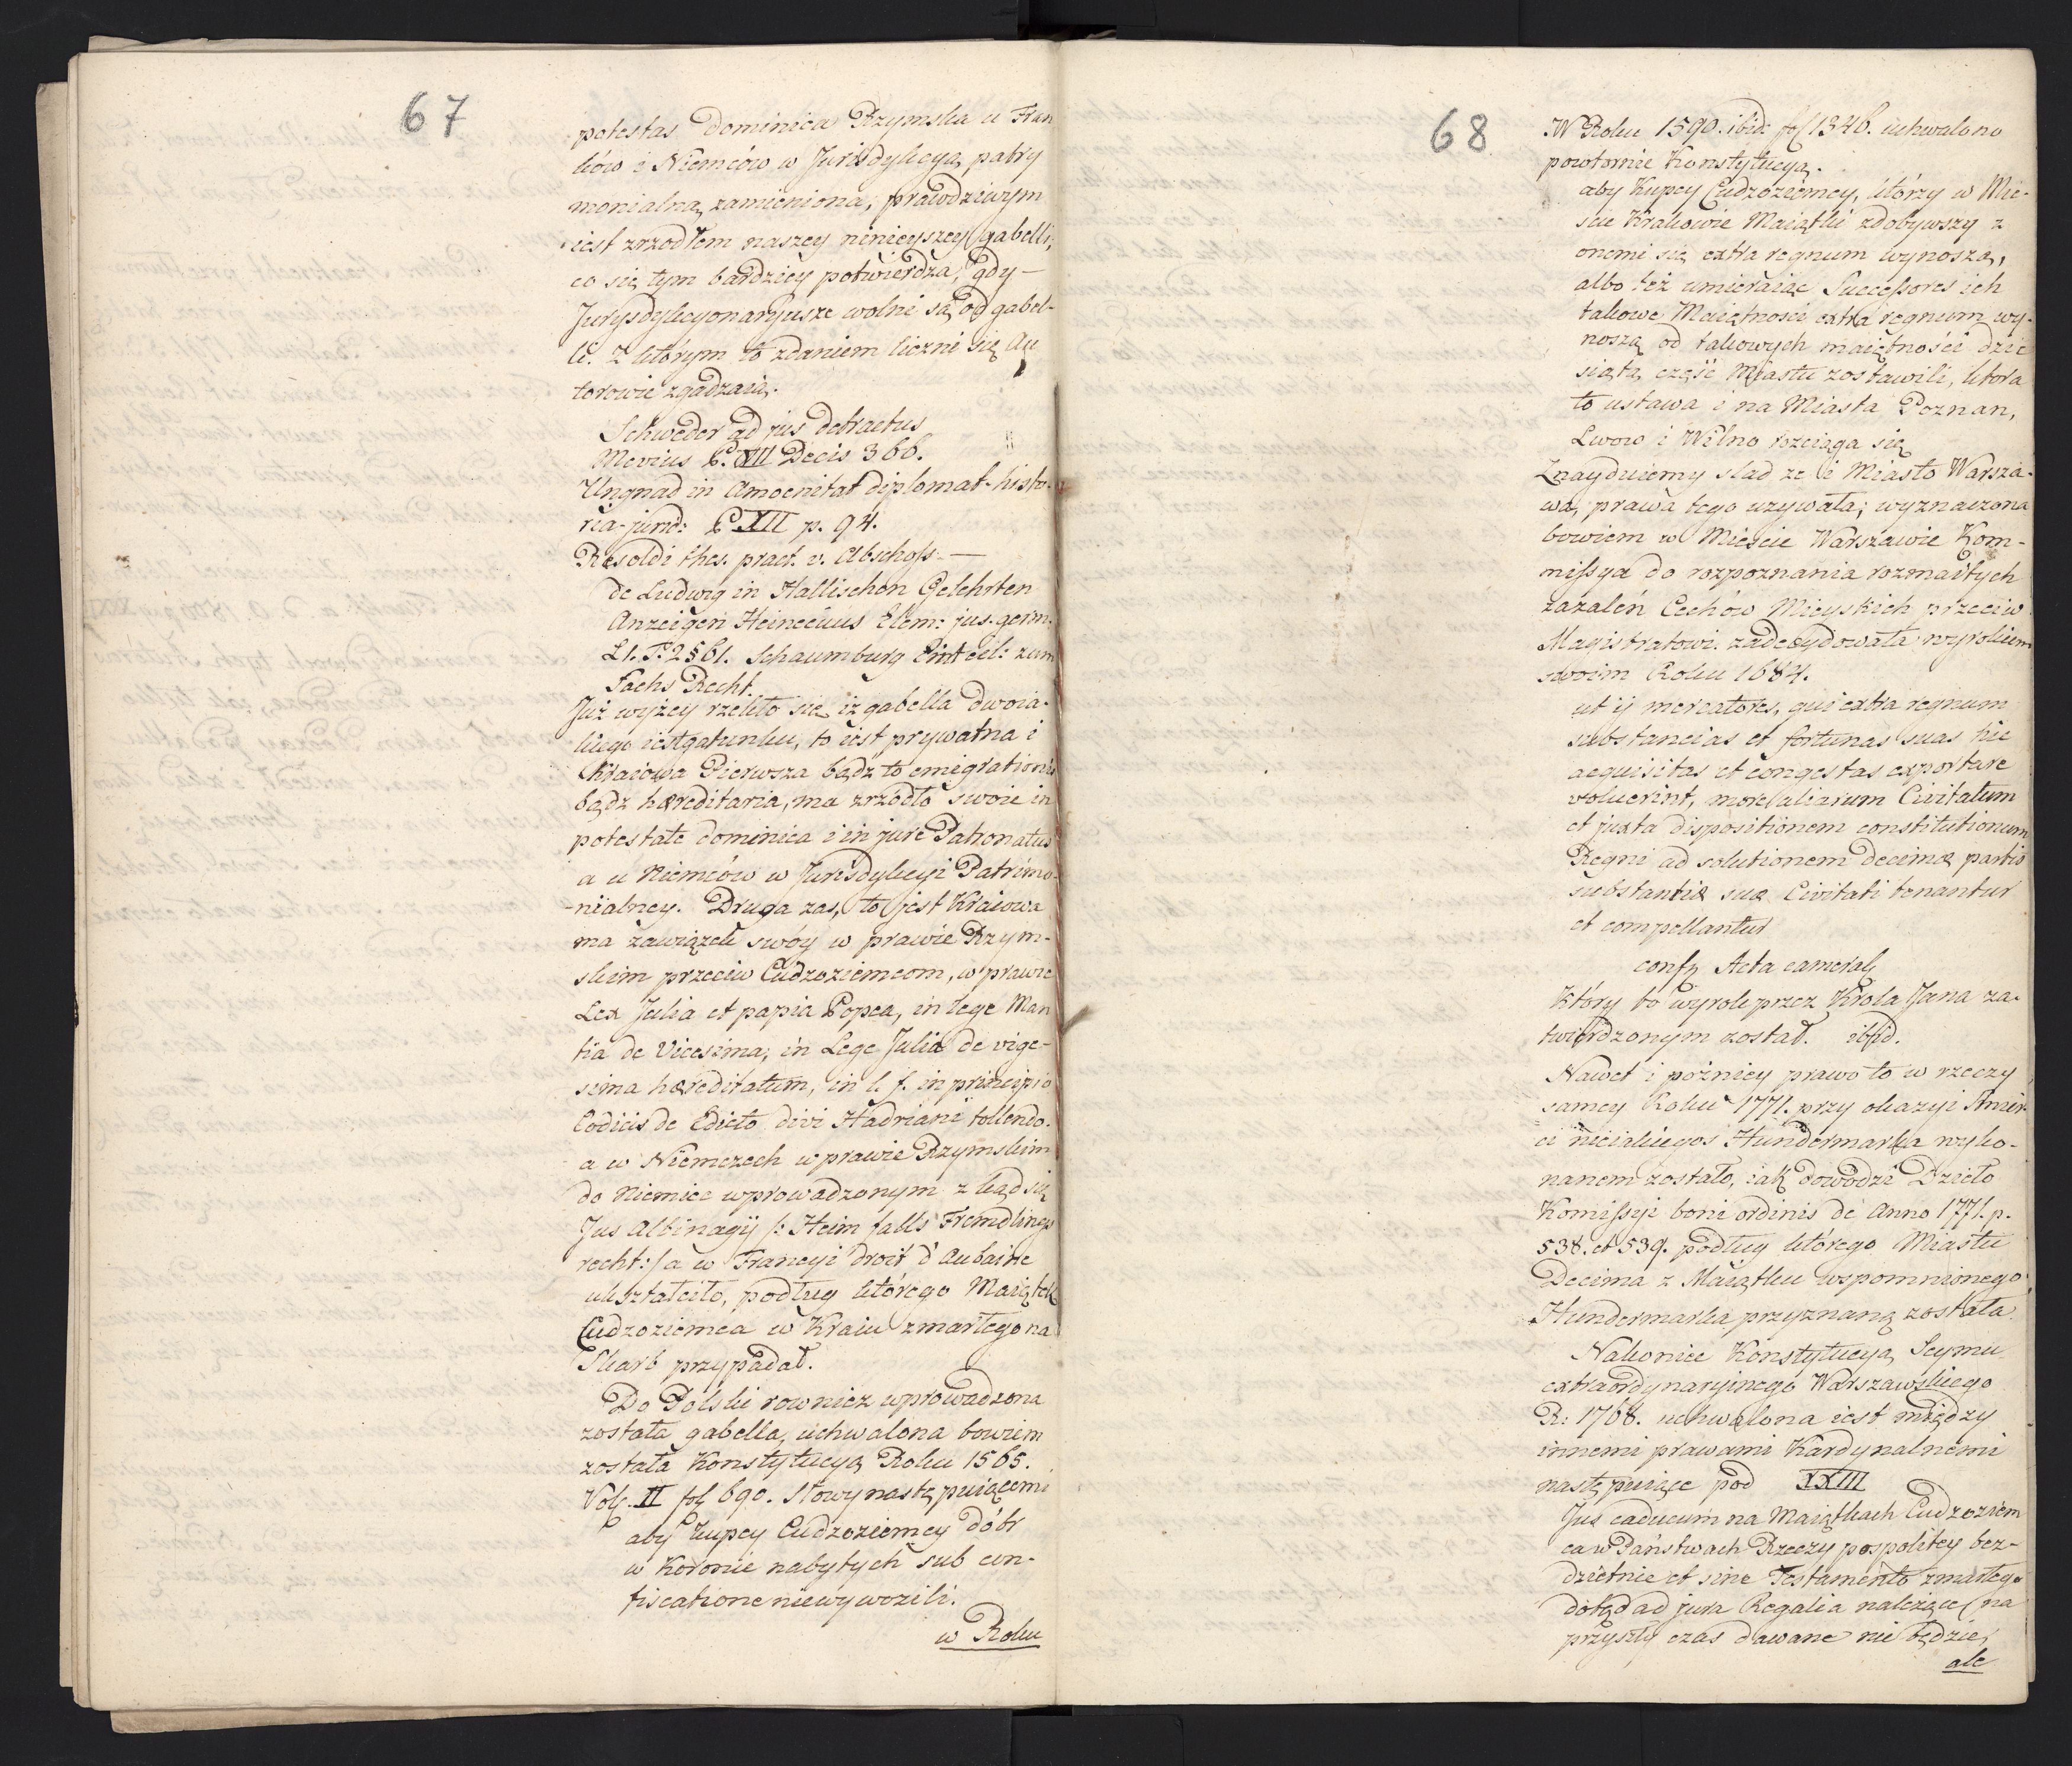 67
potestas Dominica Rzymska u Fran
ków i Niemców w Jurisdykcyą patry
monialną zamieniona, prawdziwym
iest zrzodłem naszey ninieyszey gabelli,
co się tym bardziey potwierdza, gdy —
Jurysdykcyonaryusze wolni są od gabel-
li. Z którym to zdaniem liczni się Au
torowie zgadzaią.
Schweder ad jus detractus
Mevius P. VII Decis 366.
Ungnad in Amoenitat diplomat. histo-
ria-jurid: P XII p. 94.
Besoldi thes. pract. v. Abschoss —
de Ludwig in Hallischen Gelehrten
Anzeigen Heineccius Elem: jus. germ.
L1. T. 2 § 61. Schaumburg Einteil: zum
Sachs Recht.
Już wyżey rzekło się iż gabella dwoia-
kiego iest gatunku, to iest prywatna i
Kraiowa Pierwsza bądz to emigrationis
bądz hæreditaria, ma zrzodło swoie in
potestate dominica i in jure Patronatus
a u Niemców w Jurisdykcyi Patrimo-
-nialney. Druga zas, to jest Kraiowa
ma zawiązek swóy w prawie Rzym-
skim przeciw Cudzoziemcom, w prawie
Lex Julia et papia Popea, in lege Man
tia de Vicesima, in Lege Julia de vige-
sima hæreditatum, in l. f. in principio
Codicis de Edicto divi Hadriani tollendo.
a w Niemczech w prawie Rzymskim
do Niemiec wprowadzonym zkąd się
Jus Albinagij /: Heim falls Fremdlings
recht :/ a w Francyi droit d'Aubaine
ukształciło, podług którego Maiątek
Cudzoziemca w Kraiu zmarłego na
Skarb przypadał.
Do Polski rownież wprowadzona
została gabella, uchwalona bowiem
została Konstytucyą Roku 1565.
Vol. II fol 690. słowy następuiącemi
aby Kupcy Cudzoziemcy dóbr
w Koronie nabytych sub con-
fiscatione niewywozili.
w Roku
68
W Roku 1590. ibid: fol 1346. uchwalono
powtornie Konstytucyą.
aby Kupcy Cudzoziemcy, którzy w Mie-
scie Krakowie Maiątki zdobywszy z
onemi się extra regnum wynoszą,
albo też umieraiąc Successores ich
takowe Maiętnosci extra regnum wy-
noszą od takowych maiętności dzie
siątą część Miastu zostawili, która
to ustawa i na Miasta Poznan,
Lwow i Wilno rozciąga się
Znayduiemy slad ze i Miasto Warsza-
wa, prawa tego uzywała; wyznaczona
bowiem w Mieście Warszawie Kom-
missya do rozpoznania rozmaitych
zazaleń Cechów Mieyskich przeciw
Magistratowi. zadecydowała wyrokiem
swoim Roku 1684.
ut ij mercatores, qui extra regnum
substancias et fortunas suas hic
acquisitas et congestas exportare
voluerint, more aliarum Civitatum
et juxta dispositionem constitutionum
Regni ad solutionem Decimæ partis
substantiæ suæ Civitati tenantur
et compellantur
conf. Acta cameral.
Który to wyrok przez Krola Jana za-
twierdzonym został. ibid.
Nawet i pożniey prawo to w rzeczy
samey Roku 1771. przy okazyi smier-
ci nieiakiegos Hundermarka wyko-
nanem zostało, iak dowodzi Dzieło
Komissyi boni ordinis de Anno 1771. p.
538. et 539. podług którego Miastu
Decima z Maiątku wspomnionego
Hundermarka przyznaną została.
Nakoniec Konstytucyą Seymu
extraordynaryinego Warszawskiego
R: 1768. uchwalona iest między
innemi prawami Kardynalnemi
następuiące pod XXIII
Jus caducum na Maiątkach Cudzoziem
ca w Państwach Rzeczy pospolitey bez-
dzietnie et sine Testamento zmarłego
dotąd ad jura Regalia należące (na
przyszły czas dawane nie będzie,
ale